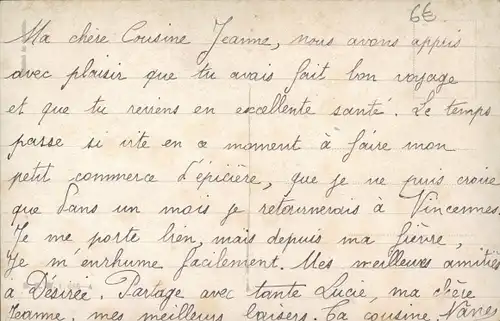 6€
Ma chère Cousine Jeanne, nous avons appris
avec plaisir que tu avais fait bon voyage
et que tu reviens en excellente santé. Le temps
passe si vite en ce moment à faire mon
petit commerce d'épicière, que je ne puis croire
que dans un mois je retournerais à Vincennes.
Je me porte bien, mais depuis ma fièvre,
Je m'enrhume facilement. Mes meilleures amitiés
a Désirée. Partage avec tante Lucie, ma chère
Jeanne, mes meilleurs baisers. Ta cousine